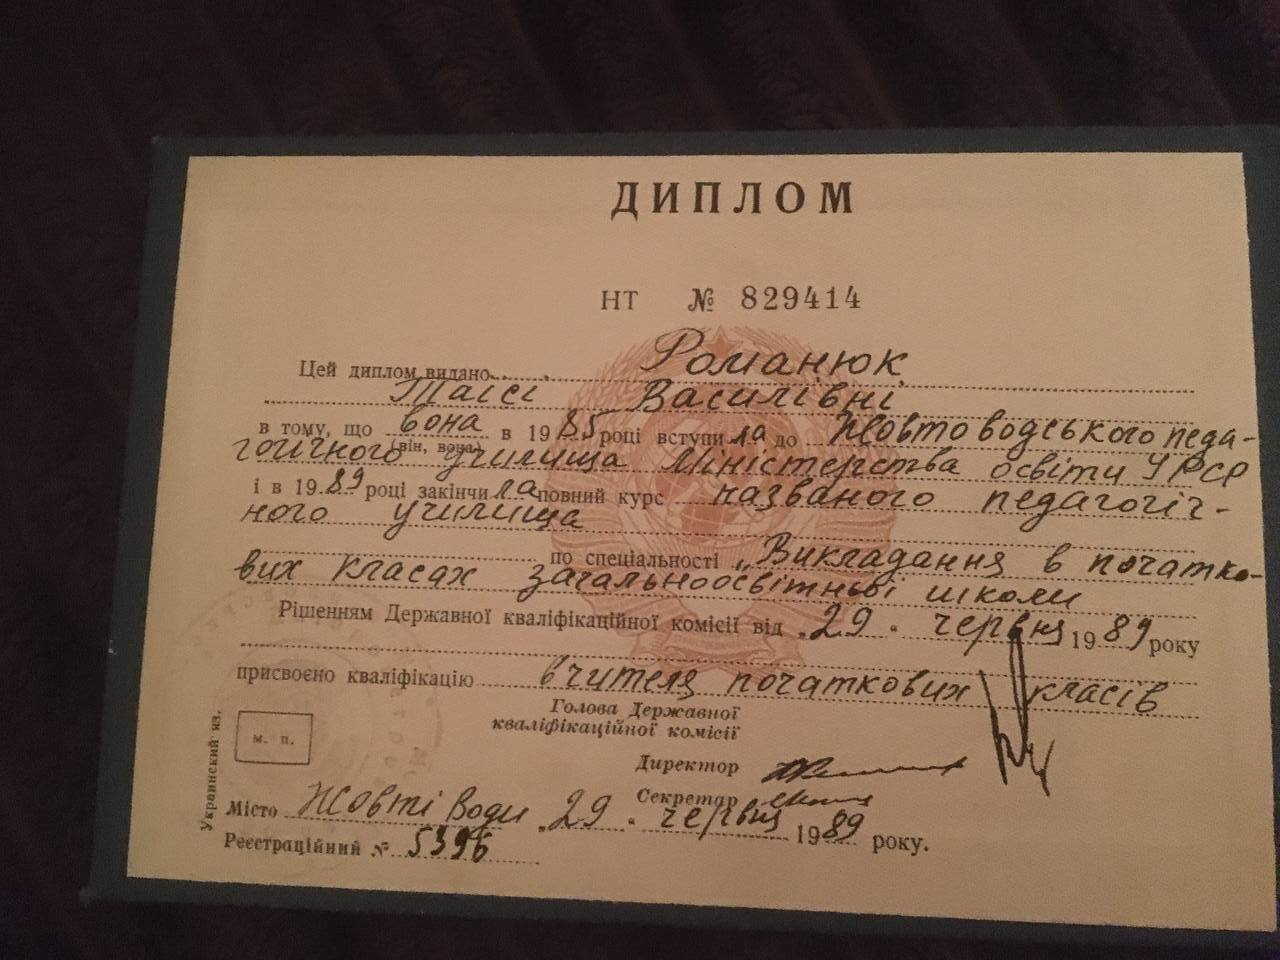 ДИПЛОМ
НТ № 829414
Цей диплом видано Романюк
Таїсі Василівні
в тому, що вона в 1985 році вступила до Жовтоводського педа-
(він, вона)
гогічного училища Міністерства освіти УРСР
і в 1989 році закінчила повний курс названого педагогіч-
ного училища
по спеціальності „Викладання в початко-
вих класах загальноосвітньої школи
Рішенням Державної кваліфікаційної комісії від „29" червня 1989 року
присвоєно кваліфікацію вчителя початкових класів
Голова Державної
кваліфікаційної комісії
Директор
м. п.
Секретар
Украинский яз.
Місто Жовті Води „29" червня 1989 року.
Реєстраційний № 5396